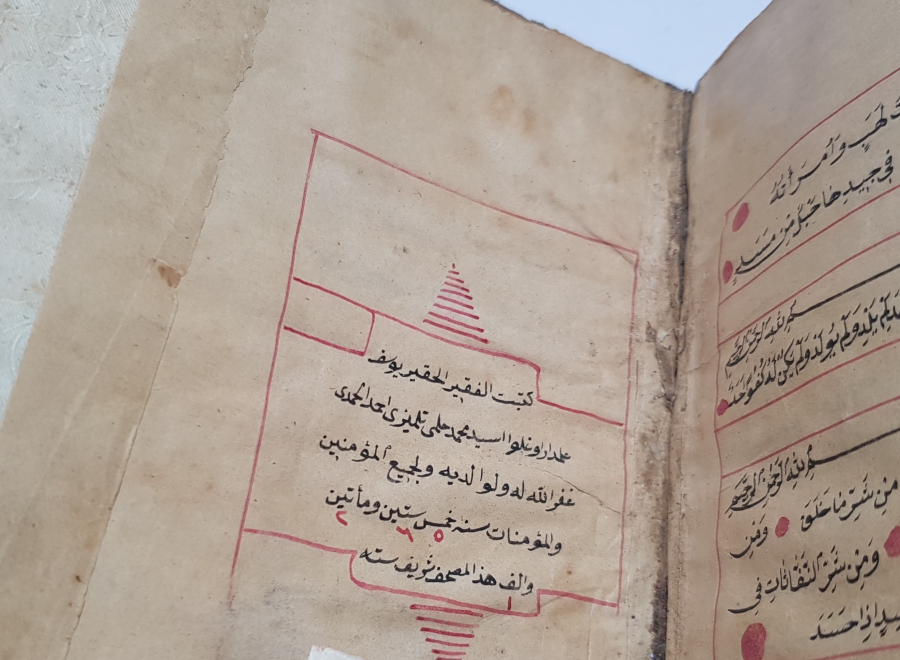 لهب وامرأته
في جيدها حبل من مسد
بسم الله الرحمن الرحيم
لم يلد ولم يولد ولم يكن له كفوا احد
بسم الله الرحمن الرحيم
من شر ما خلق ومن
ومن شر النفاثات في
اذا حسد
كتبت الفقير الحقير يوسف
السيد محمد حلمى تلميزى احمد الحمدى
غفر الله له ولوالديه ولجميع المؤمنين
والمؤمنات سنه خمس ستين ومأتين
٥ ٦ ٢
والف هذا المصحف شريف سنه
١